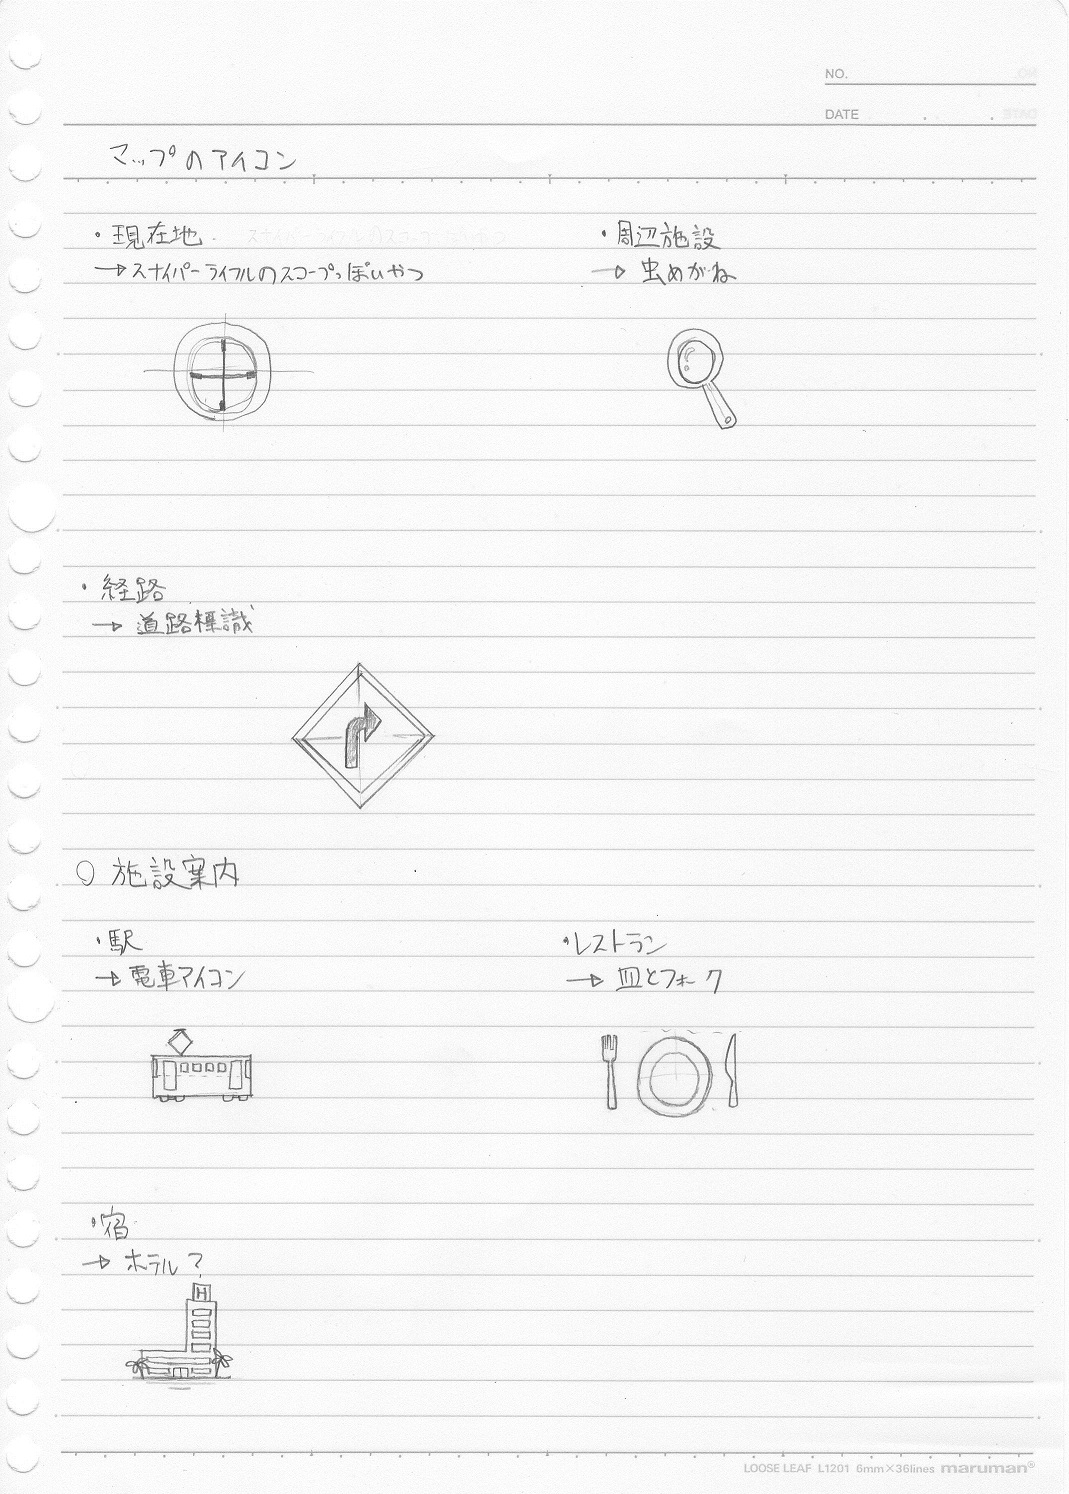 NO.
DATE
マップのアイコン
・現在地
→スナイパーライフルのスコープっぽいやつ
・周辺施設
→虫めがね
・経路
→道路標識
○施設案内
・駅
→電車アイコン
・レストラン
→皿とフォーク
・宿
→ホテル？
H
LOOSE LEAF L1201 6mm×36lines maruman®